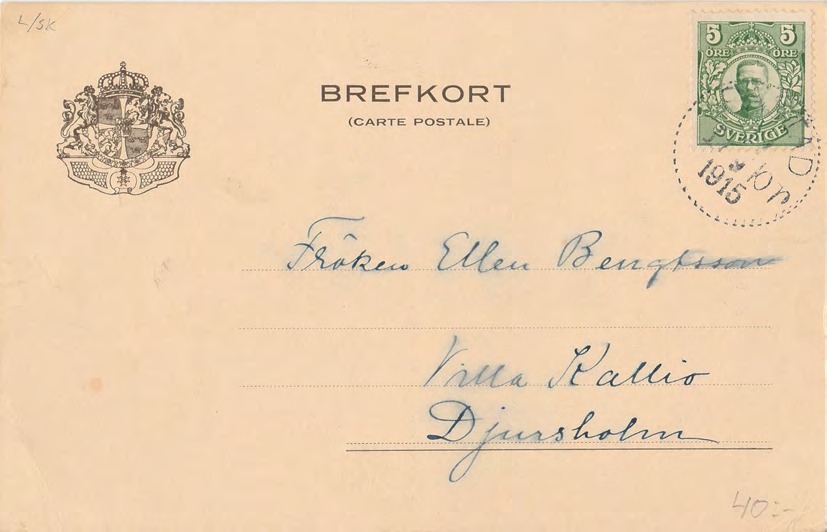 L/SK
BREFKORT
(CARTE POSTALE)
5 5
ÖRE ÖRE
SVERIGE
1915
Fröken Ellen Bengtsson
Villa Kallio
Djursholm
40:-